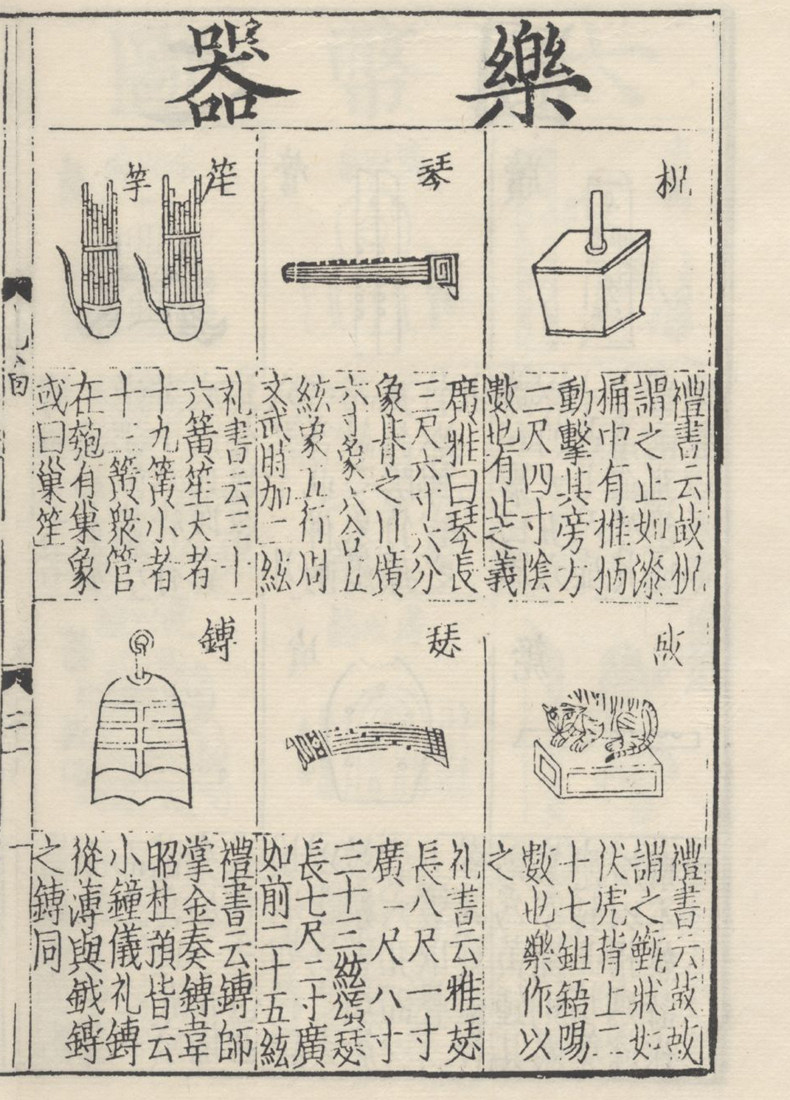 樂器
柷
禮書云鼓柷
謂之止如漆
桶中有推柄
動擊其旁方
二尺四寸隂
數也有止之義
琴
廣雅曰琴長
三尺六寸六分
象朞之日廣
六寸象六合五
絃象五行周
文武時加二絃
笙
竽
礼書云三十
六簧笙大者
十九簧小者
十三簧衆管
在匏有巢象
或曰巢笙
敔
禮書云鼓敔
謂之籈狀如
伏虎背上二
十七鉏鋙陽
數也樂作以
之
瑟
礼書云雅瑟
長八尺一寸
廣一尺八寸
三十三絃頌瑟
長七尺二寸廣
如前二十五絃
鎛
禮書云鎛師
掌金奏鎛韋
昭杜預皆云
小鐘儀礼鎛
從薄與鉞鎛
之鎛同